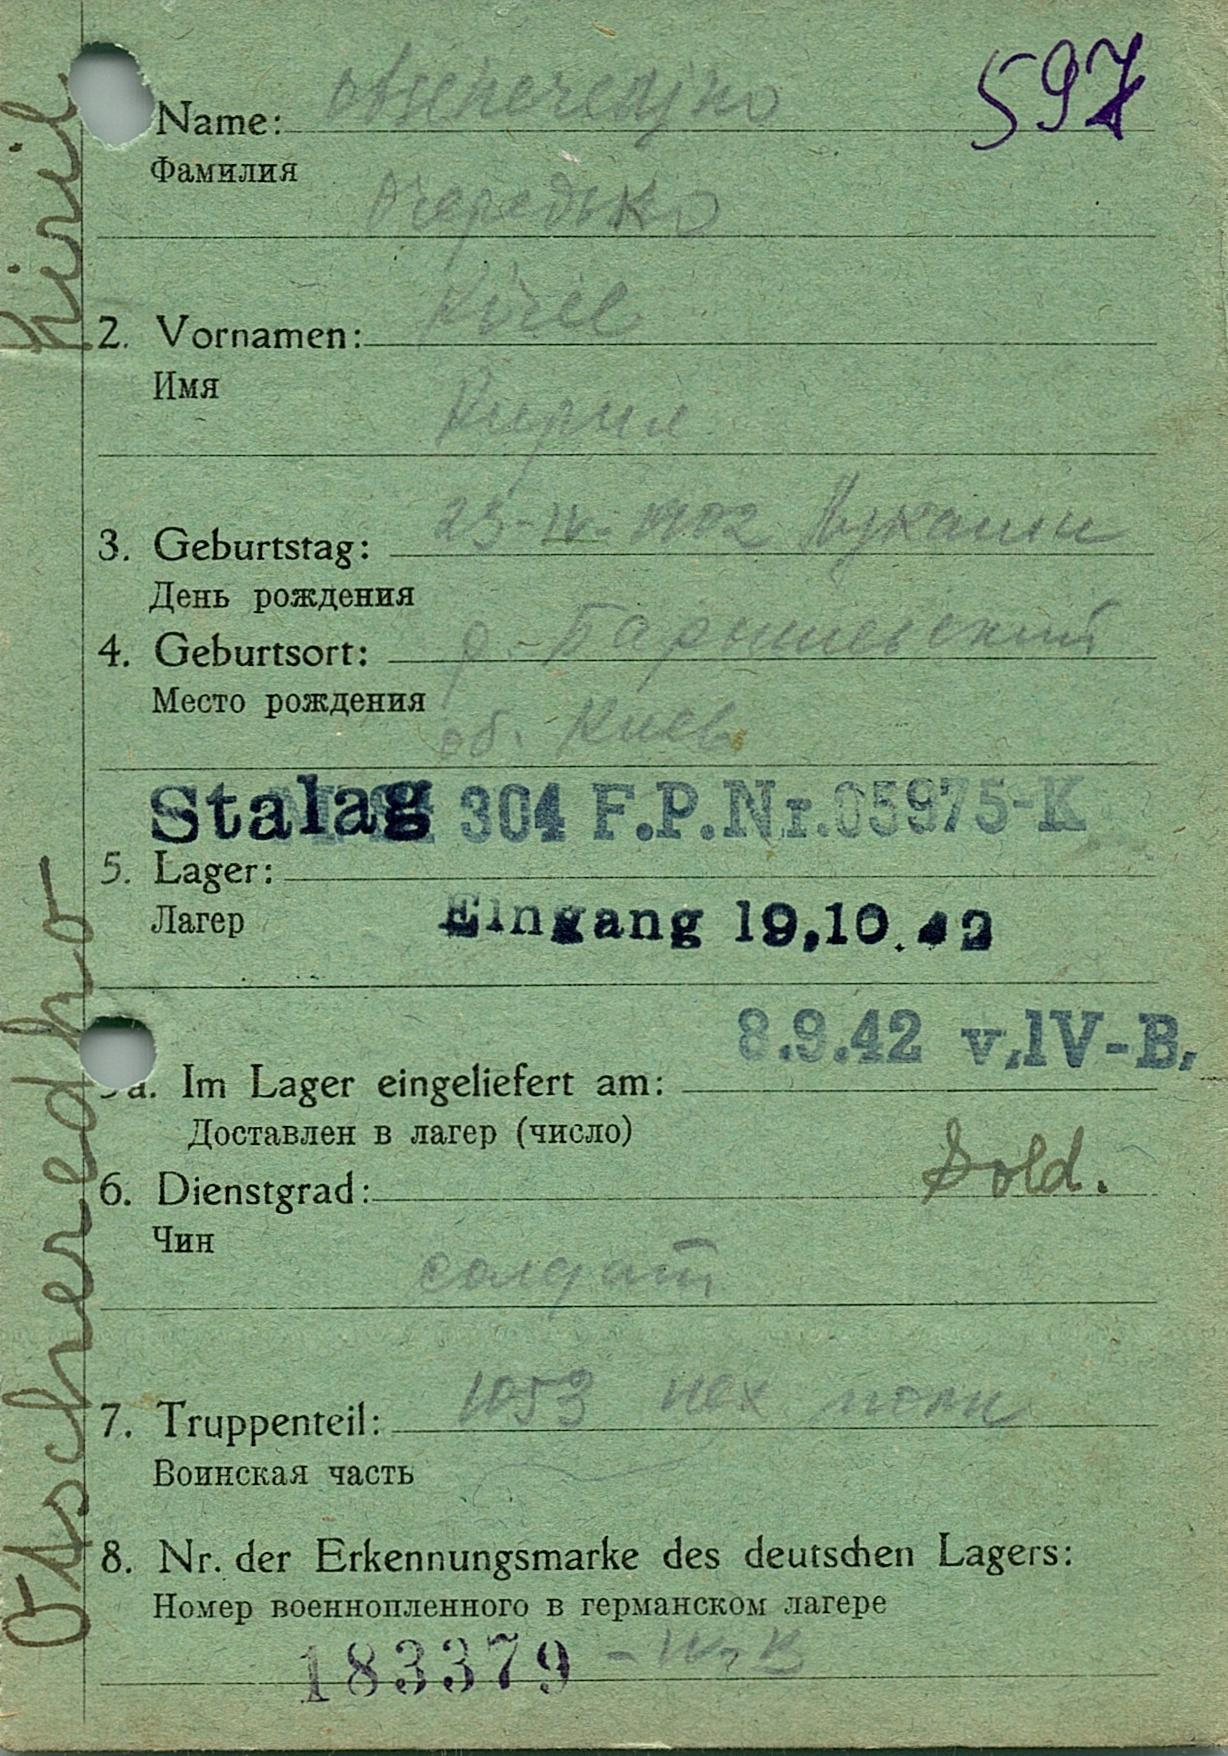 597
Name: Otschered,ko
Фамилия
Очередько
2. Vornamen: Kiril
Имя
Кирил
3. Geburtstag: 23-IV-1902 Лукаши
День рождения
4. Geburtsort: р. Барышевский
Место рождения
об. Киев
Stalag 304 F.P.Nr.05975-K
5. Lager:
Лагер
Eingang 19.10.42
8.9.42 v.IV-B.
a. Im Lager eingeliefert am:
Доставлен в лагер (число)
6. Dienstgrad: Sold.
Чин
солдат
7. Truppenteil: 1053 пех полк
Воинская часть
8. Nr. der Erkennungsmarke des deutschen Lagers:
Номер военнопленного в германском лагере
183379 - IV-B
Otscheredko Kiril